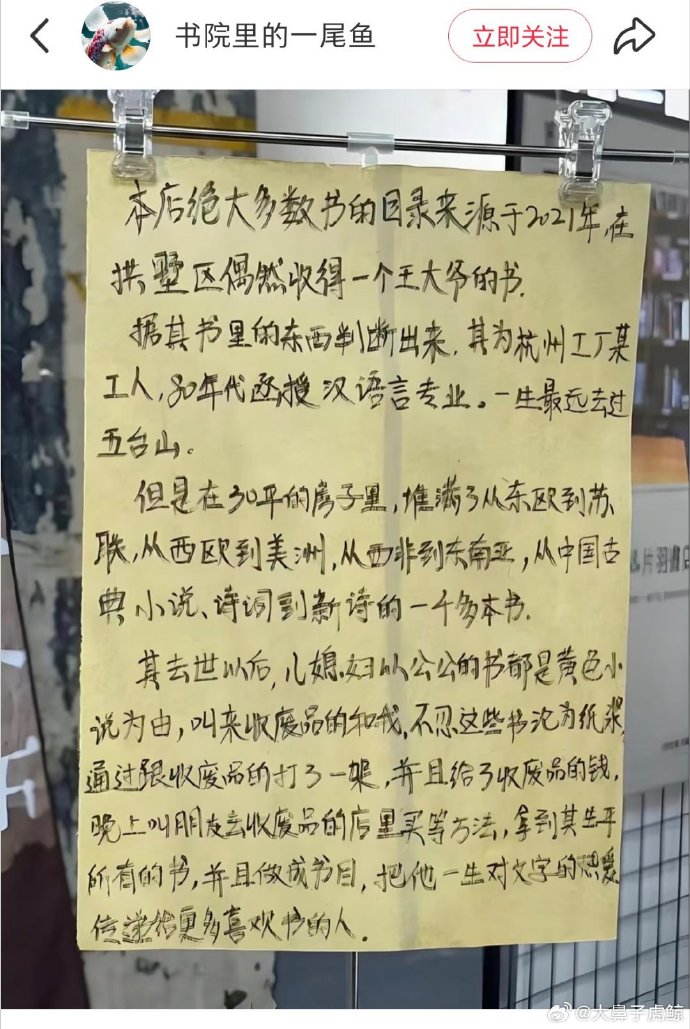 书院里的一尾鱼
立即关注
本店绝大多数书的目录来源于2021年,在
拱墅区偶然收得一个王大爷的书.
据其书里的东西判断出来,其为杭州工厂某
工人,80年代函授汉语言专业。一生最远去过
五台山。
但是在30平的房子里,堆满了从东欧到苏
联,从西欧到美洲,从西非到东南亚,从中国古
典小说、诗词到新诗的一千多本书.
其去世以后,儿媳妇以公公的书都是黄色小
说为由,叫来收废品的和我,不忍这些书沦为纸浆,
通过跟收废品的打了一架,并且给了收废品的钱,
晚上叫朋友去收废品的店里买等方法,拿到其生平
所有的书,并且做成书目,把他一生对文字的热爱
传递给更多喜欢书的人.
@大鼻子虎鲸